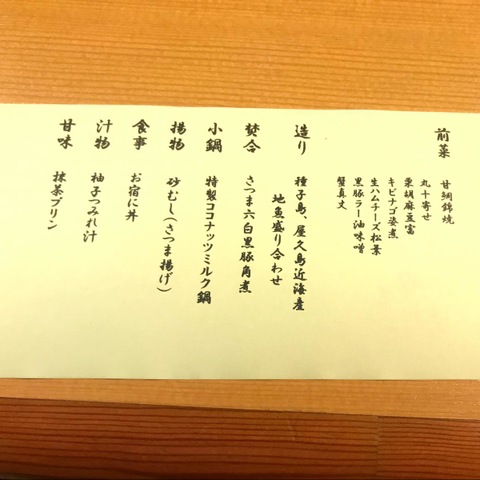 前菜
甘鯛錦焼
丸十寄せ
栗胡麻豆富
キビナゴ姿煮
生ハムチーズ松葉
黒豚ラー油味噌
蟹真丈
造り 種子島、屋久島近海産
地魚盛り合わせ
焚合 さつま六白黒豚角煮
小鍋 特製ココナッツミルク鍋
揚物 砂むし(さつま揚げ)
食事 お宿に丼
汁物 柚子つみれ汁
甘味 抹茶プリン